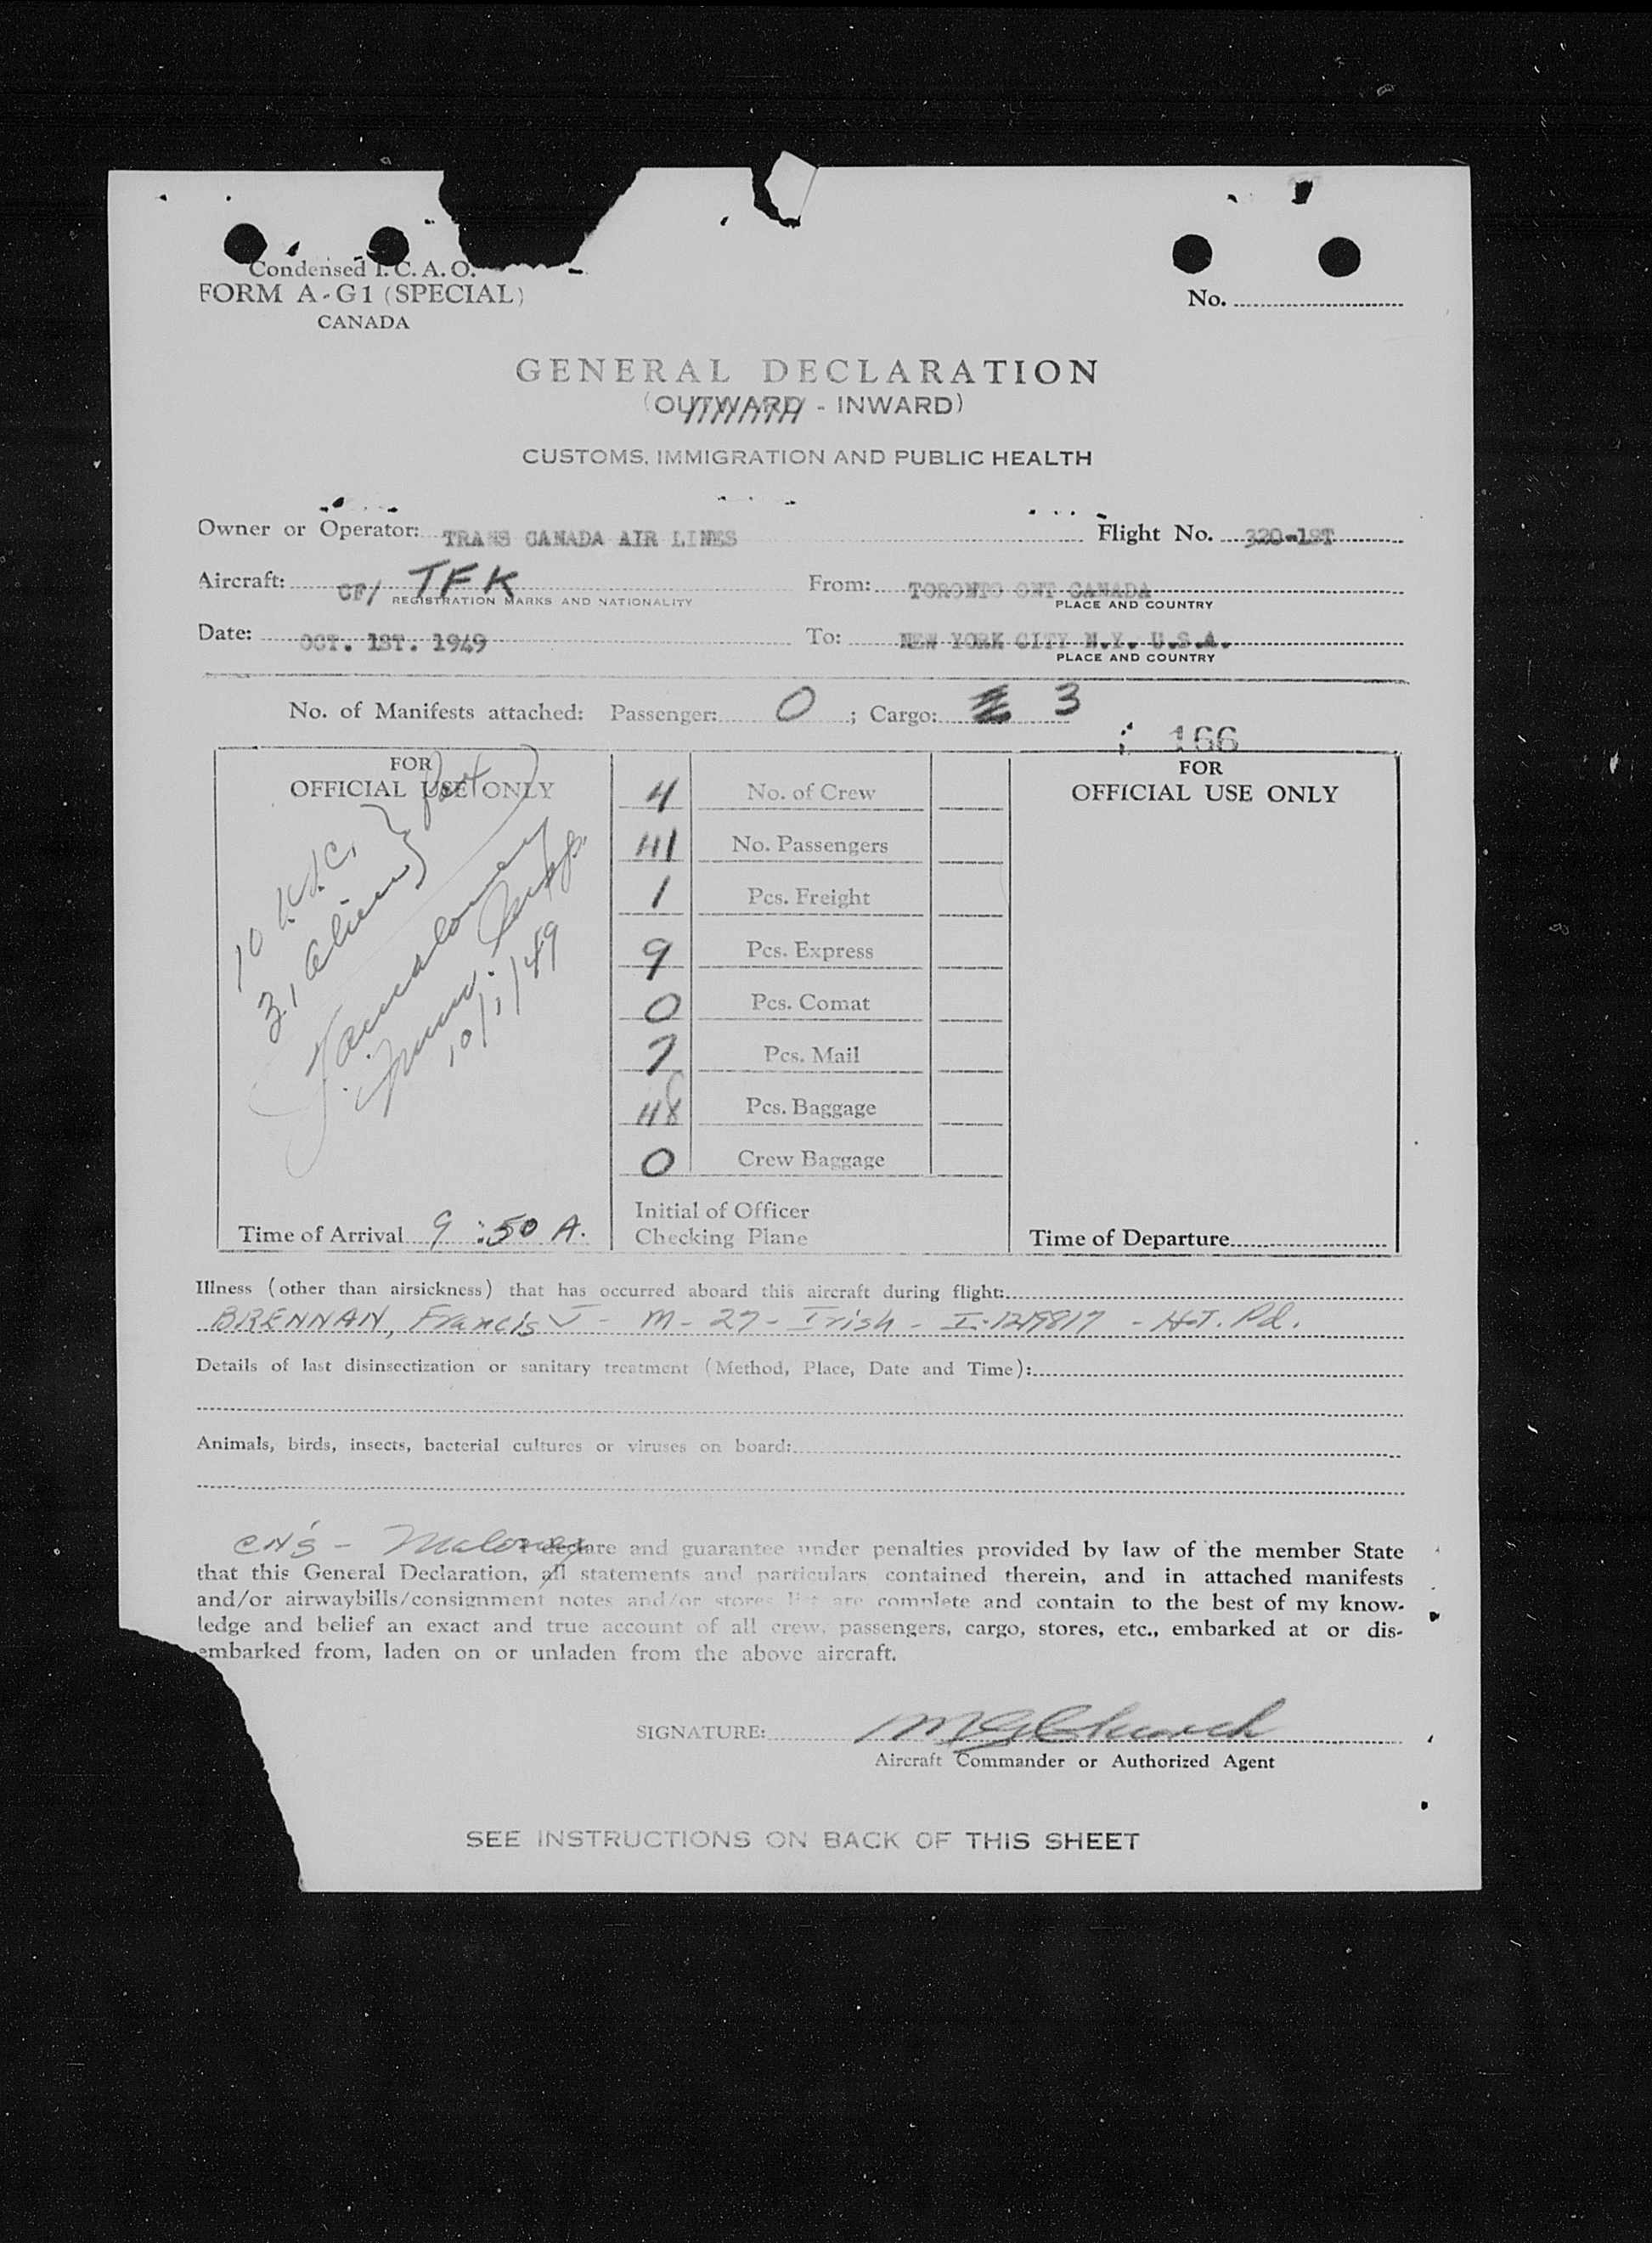 Condensed I. C. A. O.
FORM A-G1 (SPECIAL)
CANADA
No.
GENERAL DECLARATION
(OUTWARD - INWARD)
CUSTOMS, IMMIGRATION AND PUBLIC HEALTH
Owner or Operator: TRANS CANADA AIR LINES Flight No. 320-1ST
Aircraft: CF/ TFK From: TORONTO ONT CANADA
REGISTRATION MARKS AND NATIONALITY PLACE AND COUNTRY
Date: OCT. 1ST. 1949 To: NEW YORK CITY N.Y. U.S.A.
PLACE AND COUNTRY
No. of Manifests attached: Passenger: 0 ; Cargo: 3
166
FOR
OFFICIAL USE ONLY
10
31 aliens
Immig. Insp.
10/1/49
Time of Arrival 9:50 A.
4 No. of Crew
41 No. Passengers
1 Pcs. Freight
9 Pcs. Express
0 Pcs. Comat
7 Pcs. Mail
48 Pcs. Baggage
0 Crew Baggage
Initial of Officer
Checking Plane
FOR
OFFICIAL USE ONLY
Time of Departure
Illness (other than airsickness) that has occurred aboard this aircraft during flight:
BRENNAN, Francis J - M - 27 - Irish - I-1219817 - H.T. Pd.
Details of last disinsectization or sanitary treatment (Method, Place, Date and Time):
Animals, birds, insects, bacterial cultures or viruses on board:
Maloney
I declare and guarantee under penalties provided by law of the member State
that this General Declaration, all statements and particulars contained therein, and in attached manifests
and/or airwaybills/consignment notes and/or stores list are complete and contain to the best of my know-
ledge and belief an exact and true account of all crew, passengers, cargo, stores, etc., embarked at or dis-
embarked from, laden on or unladen from the above aircraft.
SIGNATURE: M G Church
Aircraft Commander or Authorized Agent
SEE INSTRUCTIONS ON BACK OF THIS SHEET